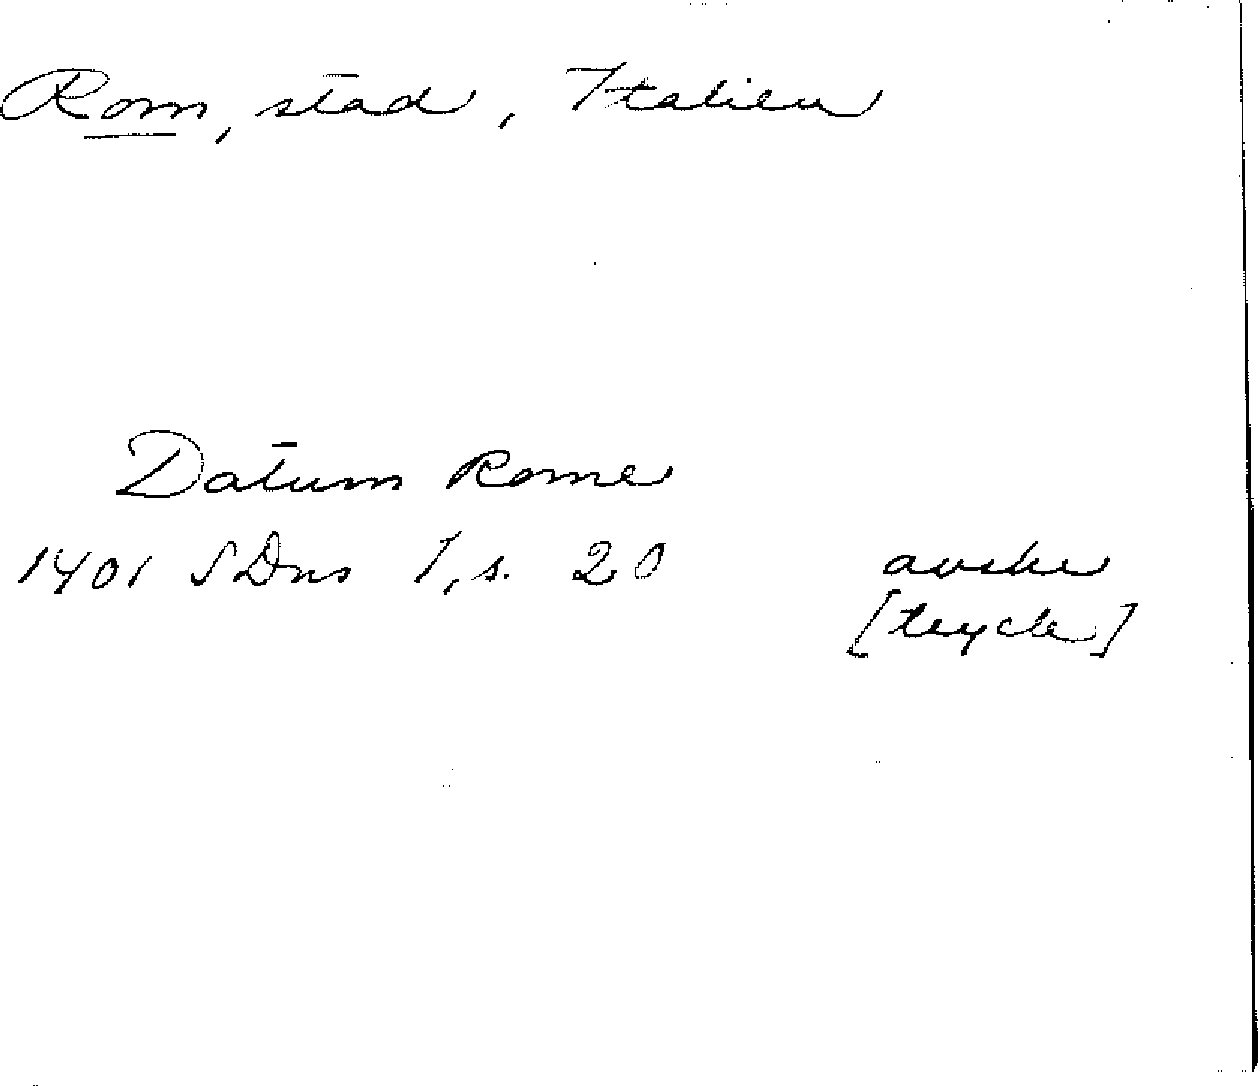 Rom, stad, Italien
Datum Rome
1401 SDns 1, s. 20 avskr
[tryck]